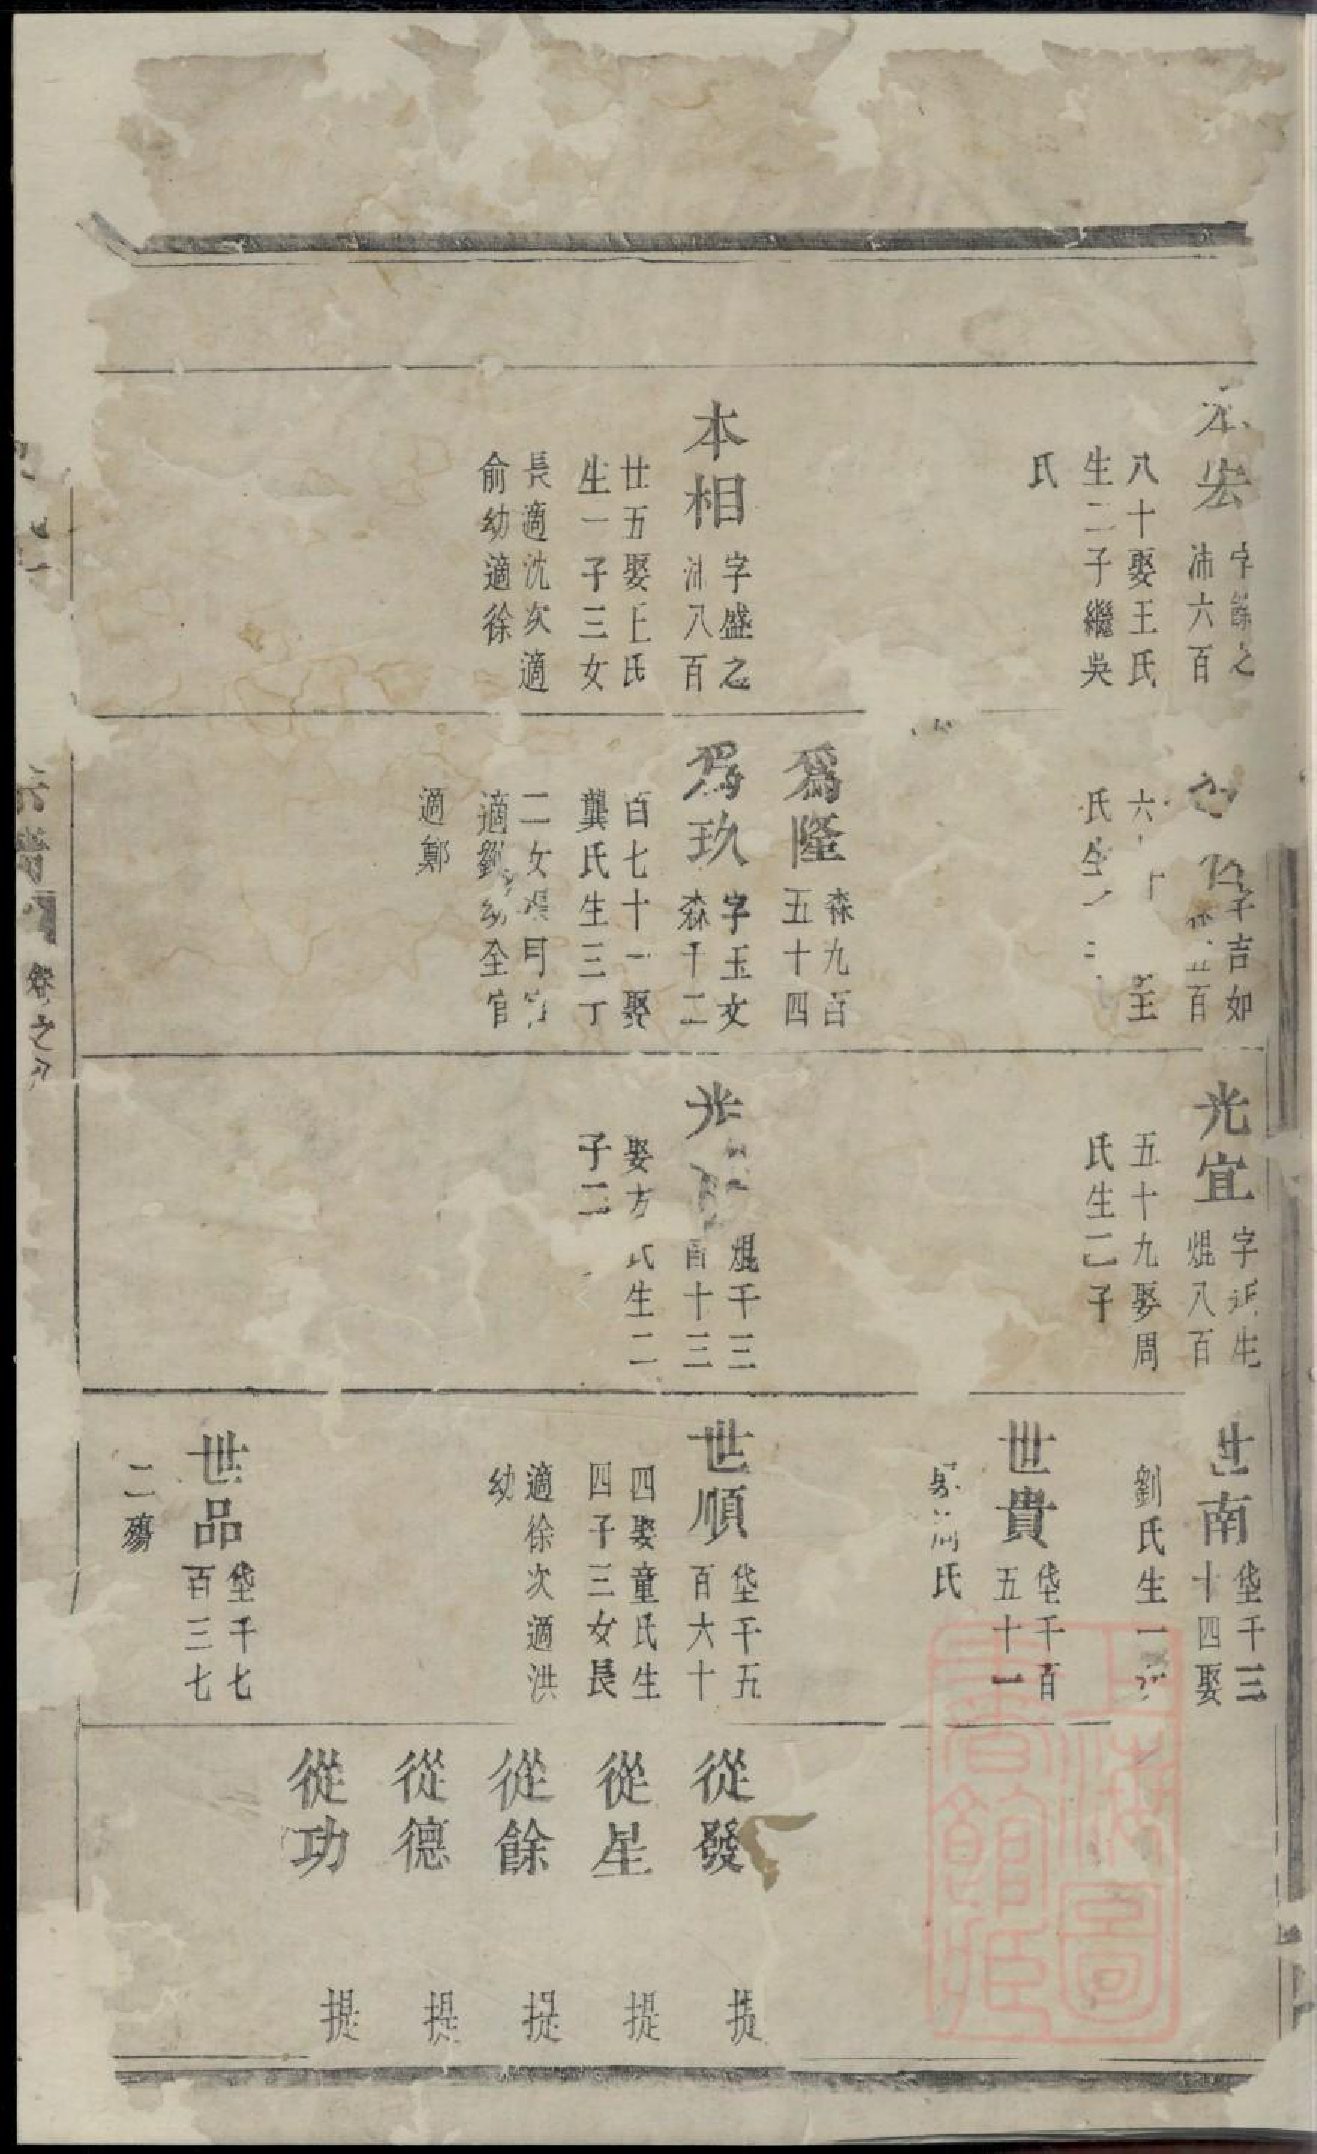 本宏
字餘之
沛六百
八十娶王氏
生二子繼吳
氏
本相
字盛之
沛八百
廿五娶王氏
生一子三女
長適沈次適
俞幼適徐
字吉如
五百
六十
氏生
爲隆
森九百
五十四
爲玖
字玉文
森千二
百七十一娶
龔氏生三丁
二女
適劉幼全官
適鄭
光宜
字近生
焜八百
五十九娶周
氏生二子
光
焜千三
百十三
娶方氏生二
子二
世南
垡千三
十四娶
劉氏生一子
世貴
垡千百
五十一
娶周氏
世順
垡千五
百六十
四娶童氏生
四子三女長
適徐次適洪
幼
世品
垡千七
百三七
二殤
從發
提
從星
提
從餘
提
從德
提
從功
提
宗譜
卷之
上海圖
書館藏